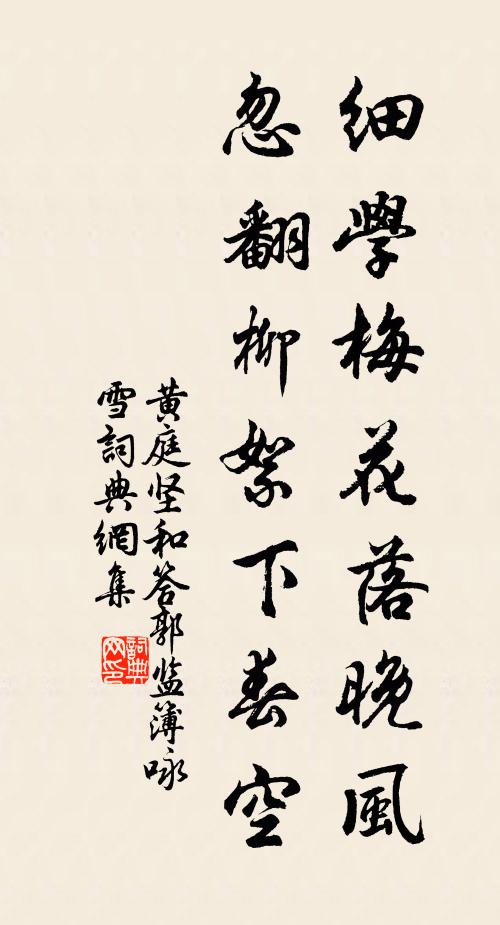 細學梅花落晚風
忽翻柳絮下春空
黃庭坚和答郭监簿咏
雪詞典網集
詞典
网印